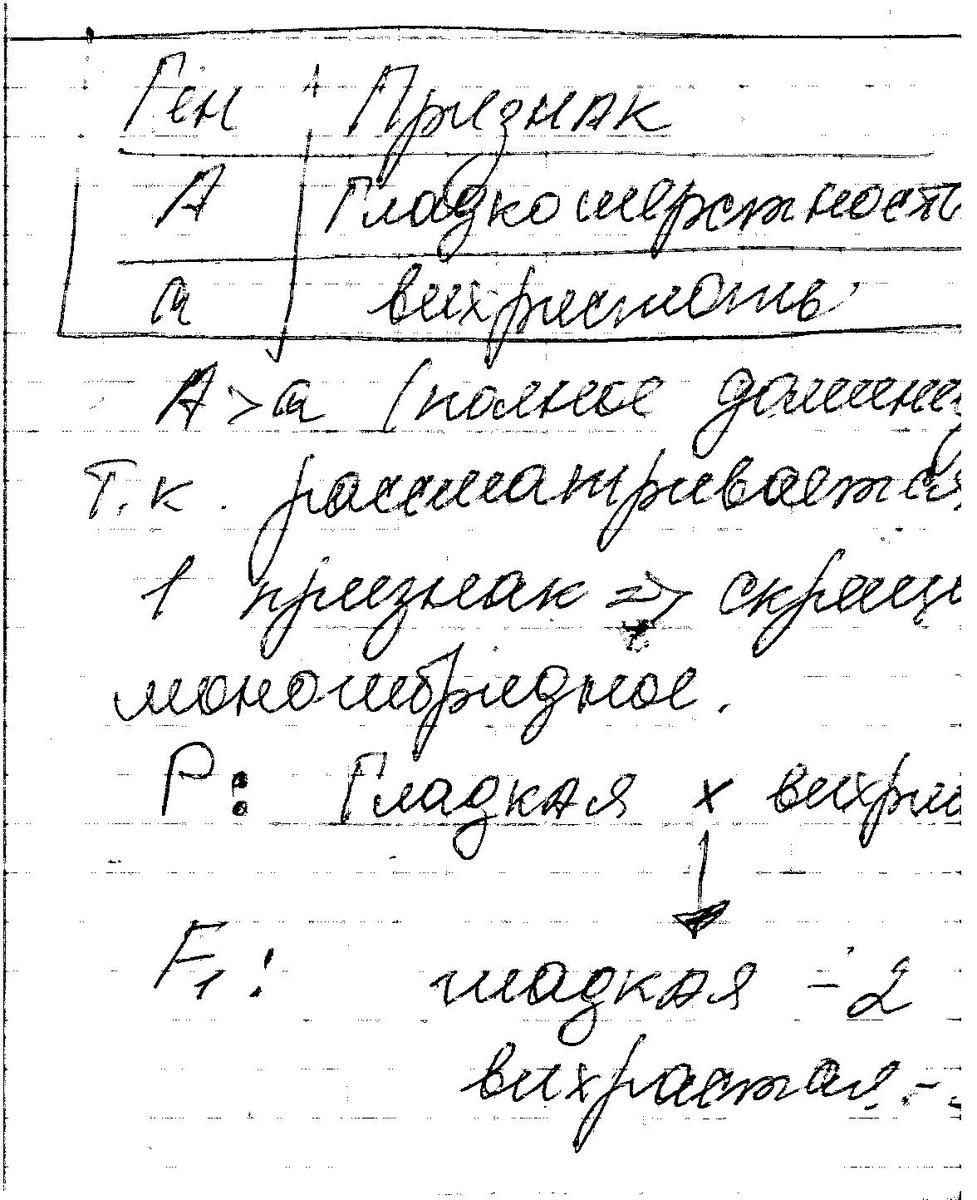 Ген Признак
А Гладкошерстность
а вихрастость
А > а (полное домини
Т.к. рассматривается
1 признак => скрещ
моногибридное.
Р: Гладкая х вихра
F₁: гладкая - 2
вихрастая -